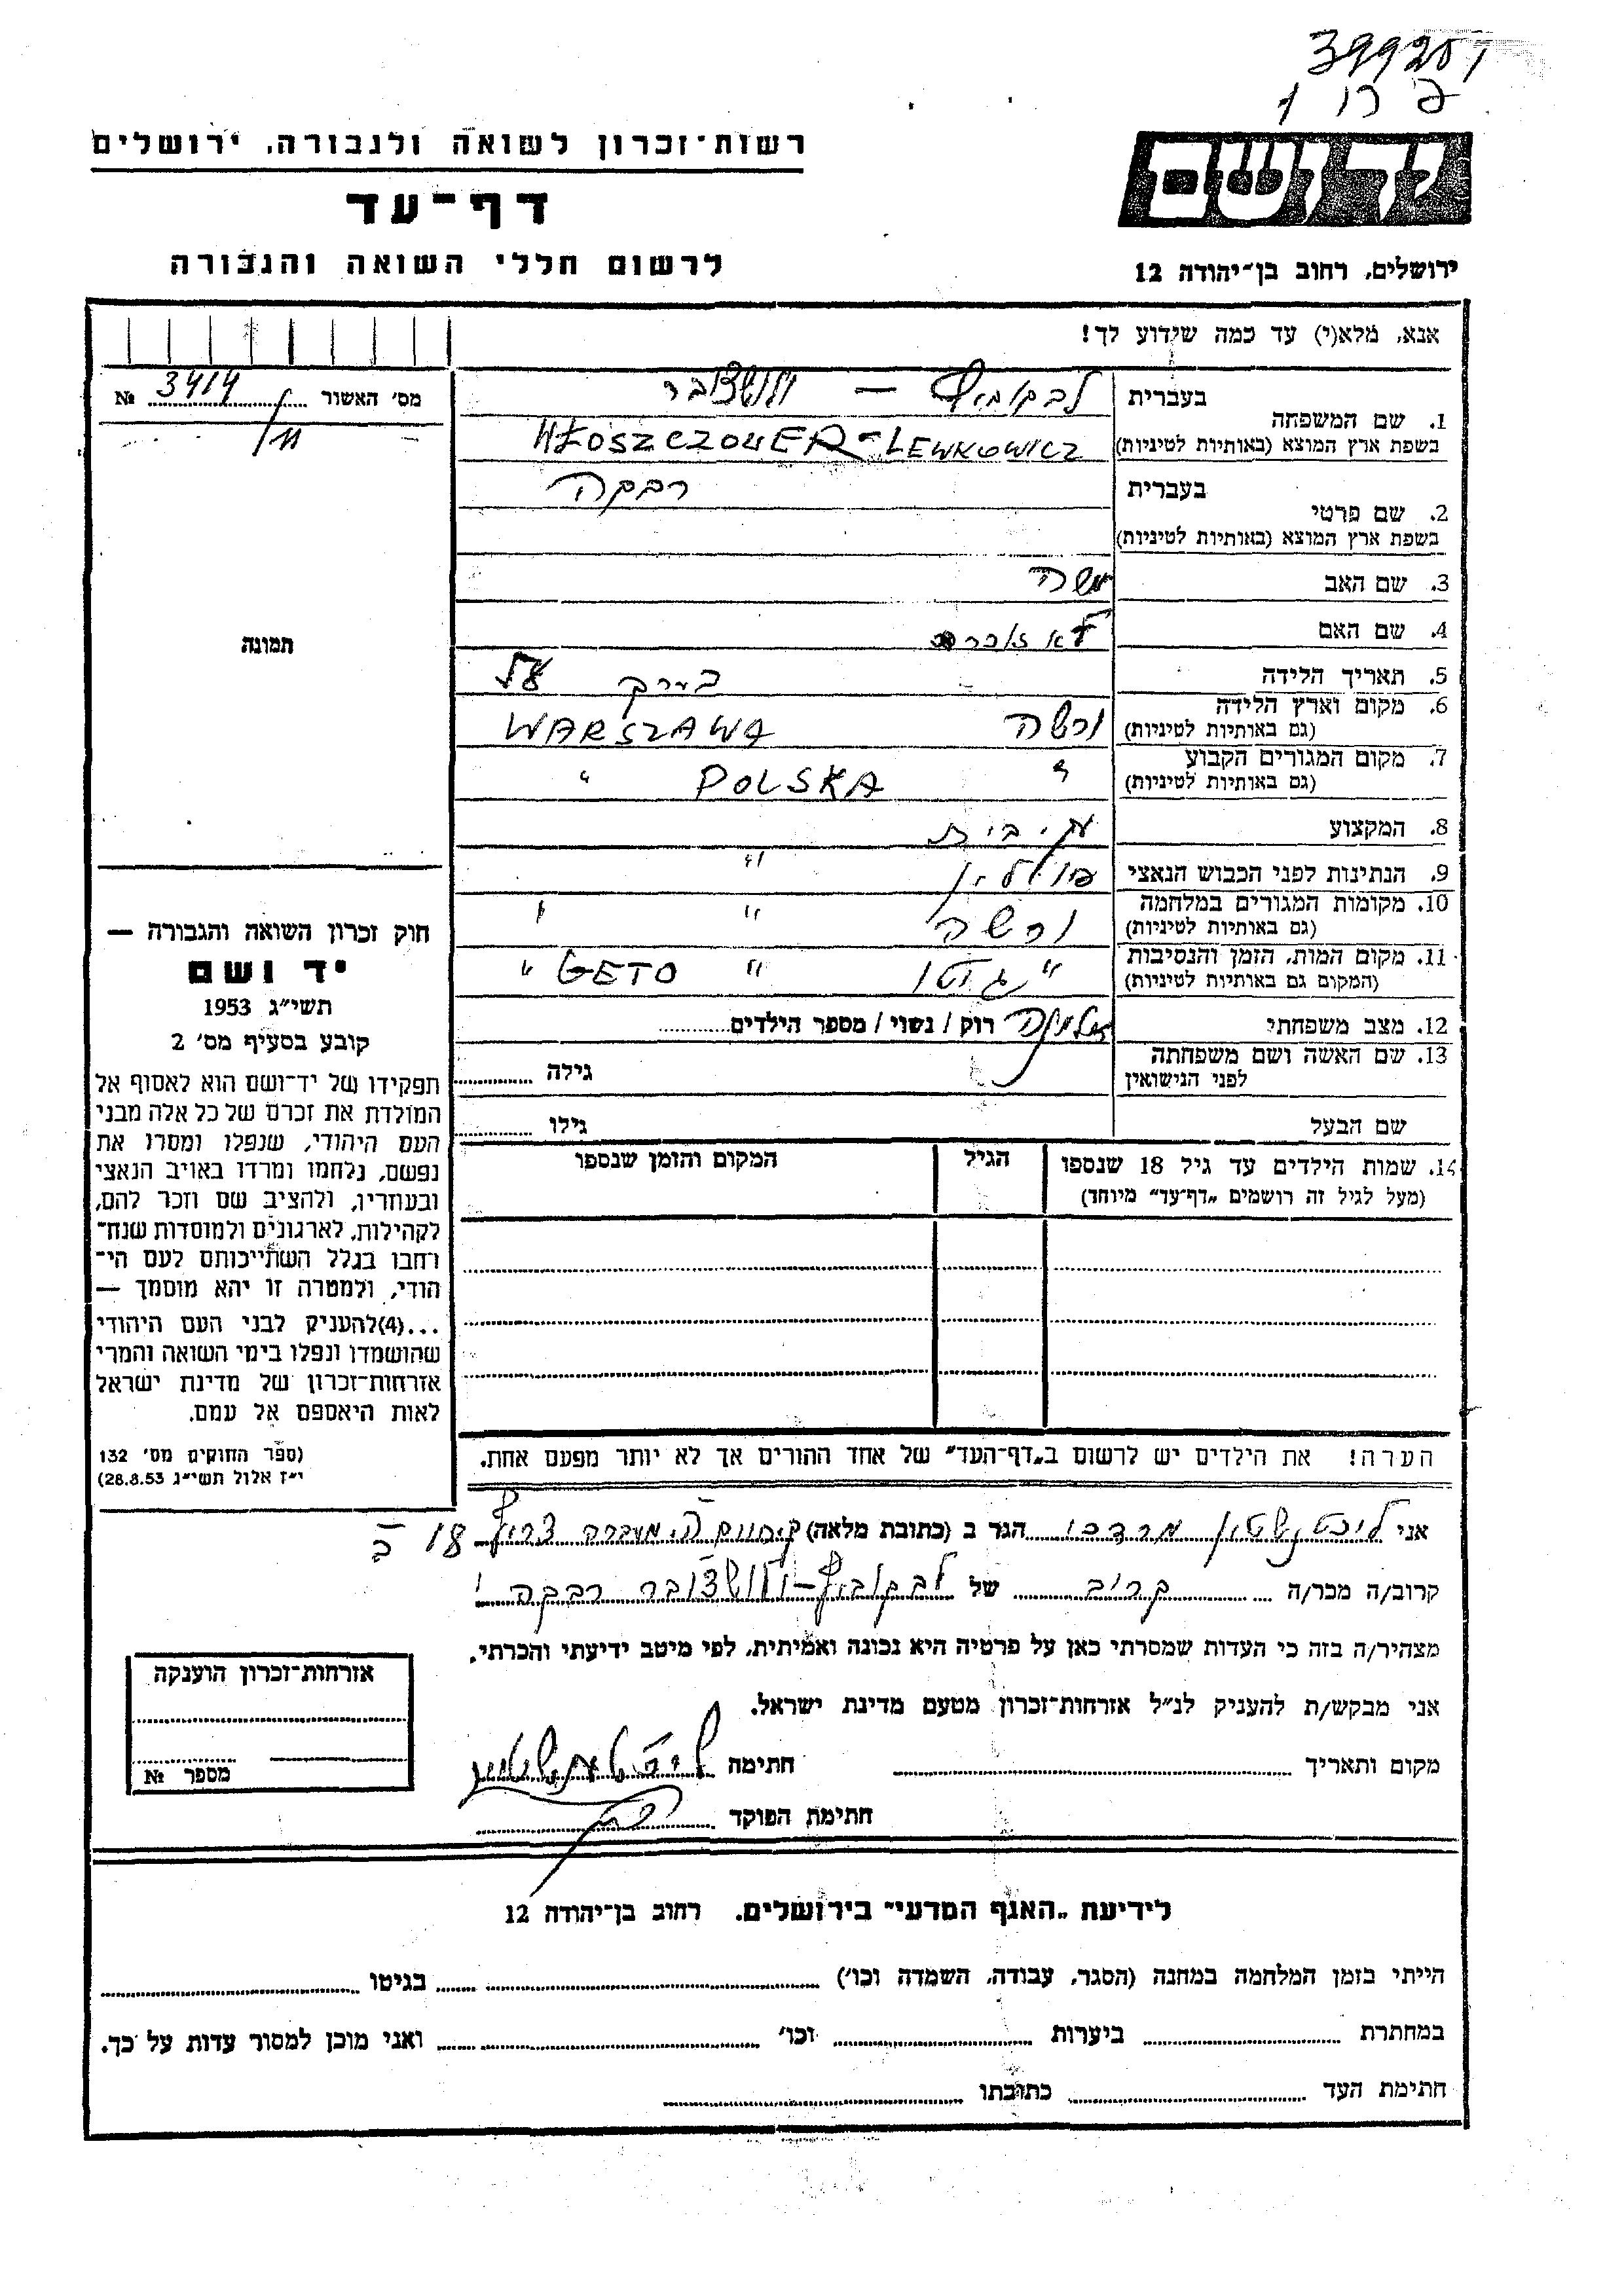 399201
רשות־זכרון לשואה ולגבורה, ירושלים
יד ושם
דף־עד
לרשום חללי השואה והגבורה
ירושלים, רחוב בן־יהודה 12
אנא, מלא(י) עד כמה שידוע לך!
מס׳ האשור 3414 №
11
תמונה
בעברית לבקוביץ — ולושצובר
1. שם המשפחה
בשפת ארץ המוצא (באותיות לטיניות) WŁOSZCZOWER-LEWKOWICZ
בעברית רבקה
2. שם פרטי
בשפת ארץ המוצא (באותיות לטיניות)
3. שם האב משה
4. שם האם לא
5. תאריך הלידה בערך
6. מקום וארץ הלידה ורשה WARSZAWA
(גם באותיות לטיניות)
7. מקום המגורים הקבוע " POLSKA "
(גם באותיות לטיניות)
8. המקצוע
9. הנתינות לפני הכבוש הנאצי פולין "
10. מקומות המגורים במלחמה ורשה " "
(גם באותיות לטיניות)
11. מקום המות, הזמן והנסיבות " גטו " GETO "
(המקום גם באותיות לטיניות)
12. מצב משפחתי אלמנה רוק / נשוי / מספר הילדים
13. שם האשה ושם משפחתה
לפני הנישואין
גילה
שם הבעל גילו
14. שמות הילדים עד גיל 18 שנספו הגיל המקום והזמן שנספו
(מעל לגיל זה רושמים „דף־עד״ מיוחד)
הערה! את הילדים יש לרשום ב„דף־העד״ של אחד ההורים אך לא יותר מפעם אחת.
חוק זכרון השואה והגבורה —
יד ושם
תשי״ג 1953
קובע בסעיף מס׳ 2
תפקידו של יד־ושם הוא לאסוף אל
המולדת את זכרם של כל אלה מבני
העם היהודי, שנפלו ומסרו את
נפשם, נלחמו ומרדו באויב הנאצי
ובעוזריו, ולהציב שם וזכר להם,
לקהילות, לארגונים ולמוסדות שנח־
רחבו בגלל השתייכותם לעם הי־
הודי, ולמטרה זו יהא מוסמך —
...(4) להעניק לבני העם היהודי
שהושמדו ונפלו בימי השואה והמרי
אזרחות־זכרון של מדינת ישראל
לאות היאספם אל עמם.
(ספר החוקים מס׳ 132
י״ז אלול תשי״ג 28.8.53)
אני ליכטנשטין מרדכי הגר ב (כתובת מלאה) המעברה צריף 18 ב
קרוב/ה מכר/ה קרוב של לבקוביץ-ולושצובר רבקה
מצהיר/ה בזה כי העדות שמסרתי כאן על פרטיה היא נכונה ואמיתית, לפי מיטב ידיעתי והכרתי.
אני מבקש/ת להעניק לנ״ל אזרחות־זכרון מטעם מדינת ישראל.
מקום ותאריך חתימה ליכטנשטיין
חתימת הפוקד
אזרחות־זכרון הוענקה
מספר №
לידיעת „האגף המדעי״ בירושלים, רחוב בן־יהודה 12
הייתי בזמן המלחמה במחנה (הסגר, עבודה, השמדה וכו׳) בגיטו
במחתרת ביערות וכו׳ ואני מוכן למסור עדות על כך.
חתימת העד כתובתו